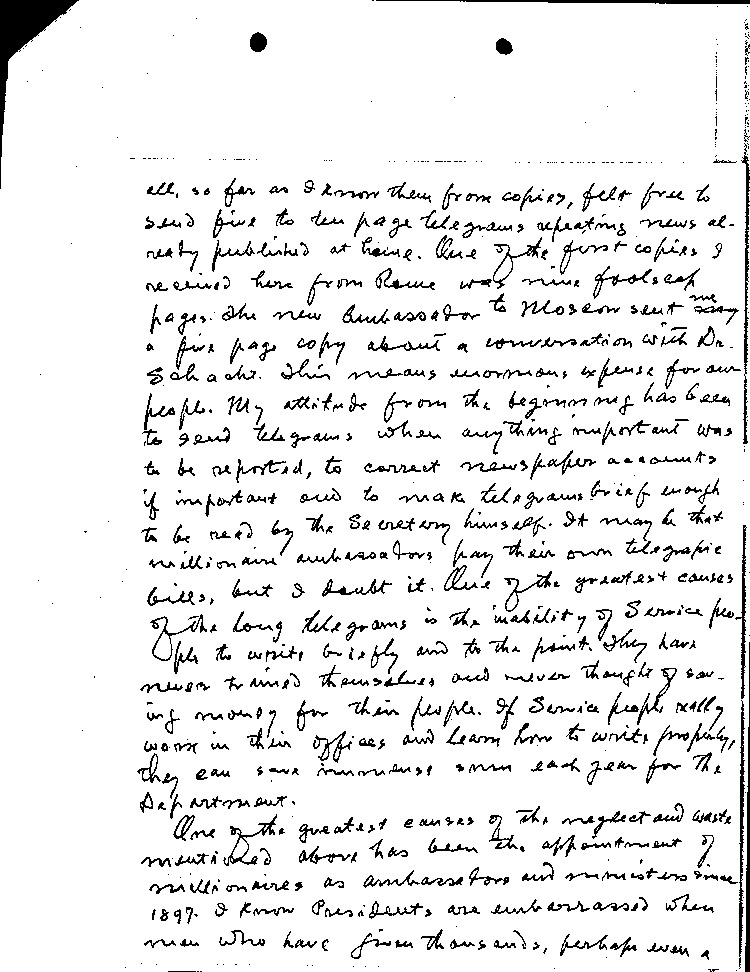 all, so far as I know them from copies, felt free to
send five to ten page telegrams repeating news al-
ready published at home. One of the first copies I
received here from Rome was nine foolscap
pages. The new Ambassador to Moscow sent me
a five page copy about a conversation with Dr.
Schacht. This means enormous expense for our
people. My attitude from the beginning has been
to send telegrams when anything important was
to be reported, to correct newspaper accounts
if important and to make telegrams brief enough
to be read by the Secretary himself. It may be that
millionaire ambassadors pay their own telegraphic
bills, but I doubt it. One of the greatest causes
of the long telegrams is the inability of Service peo-
ple to write briefly and to the point. They have
never trained themselves and never thought of sav-
ing money for their people. If Service people really
work in their offices and learn how to write properly,
they can save immense sums each year for the
Department.
One of the greatest causes of the neglect and waste
mentioned above has been the appointment of
millionaires as ambassadors and ministers since
1897. I know Presidents are embarrassed when
men who have given thousands, perhaps even a